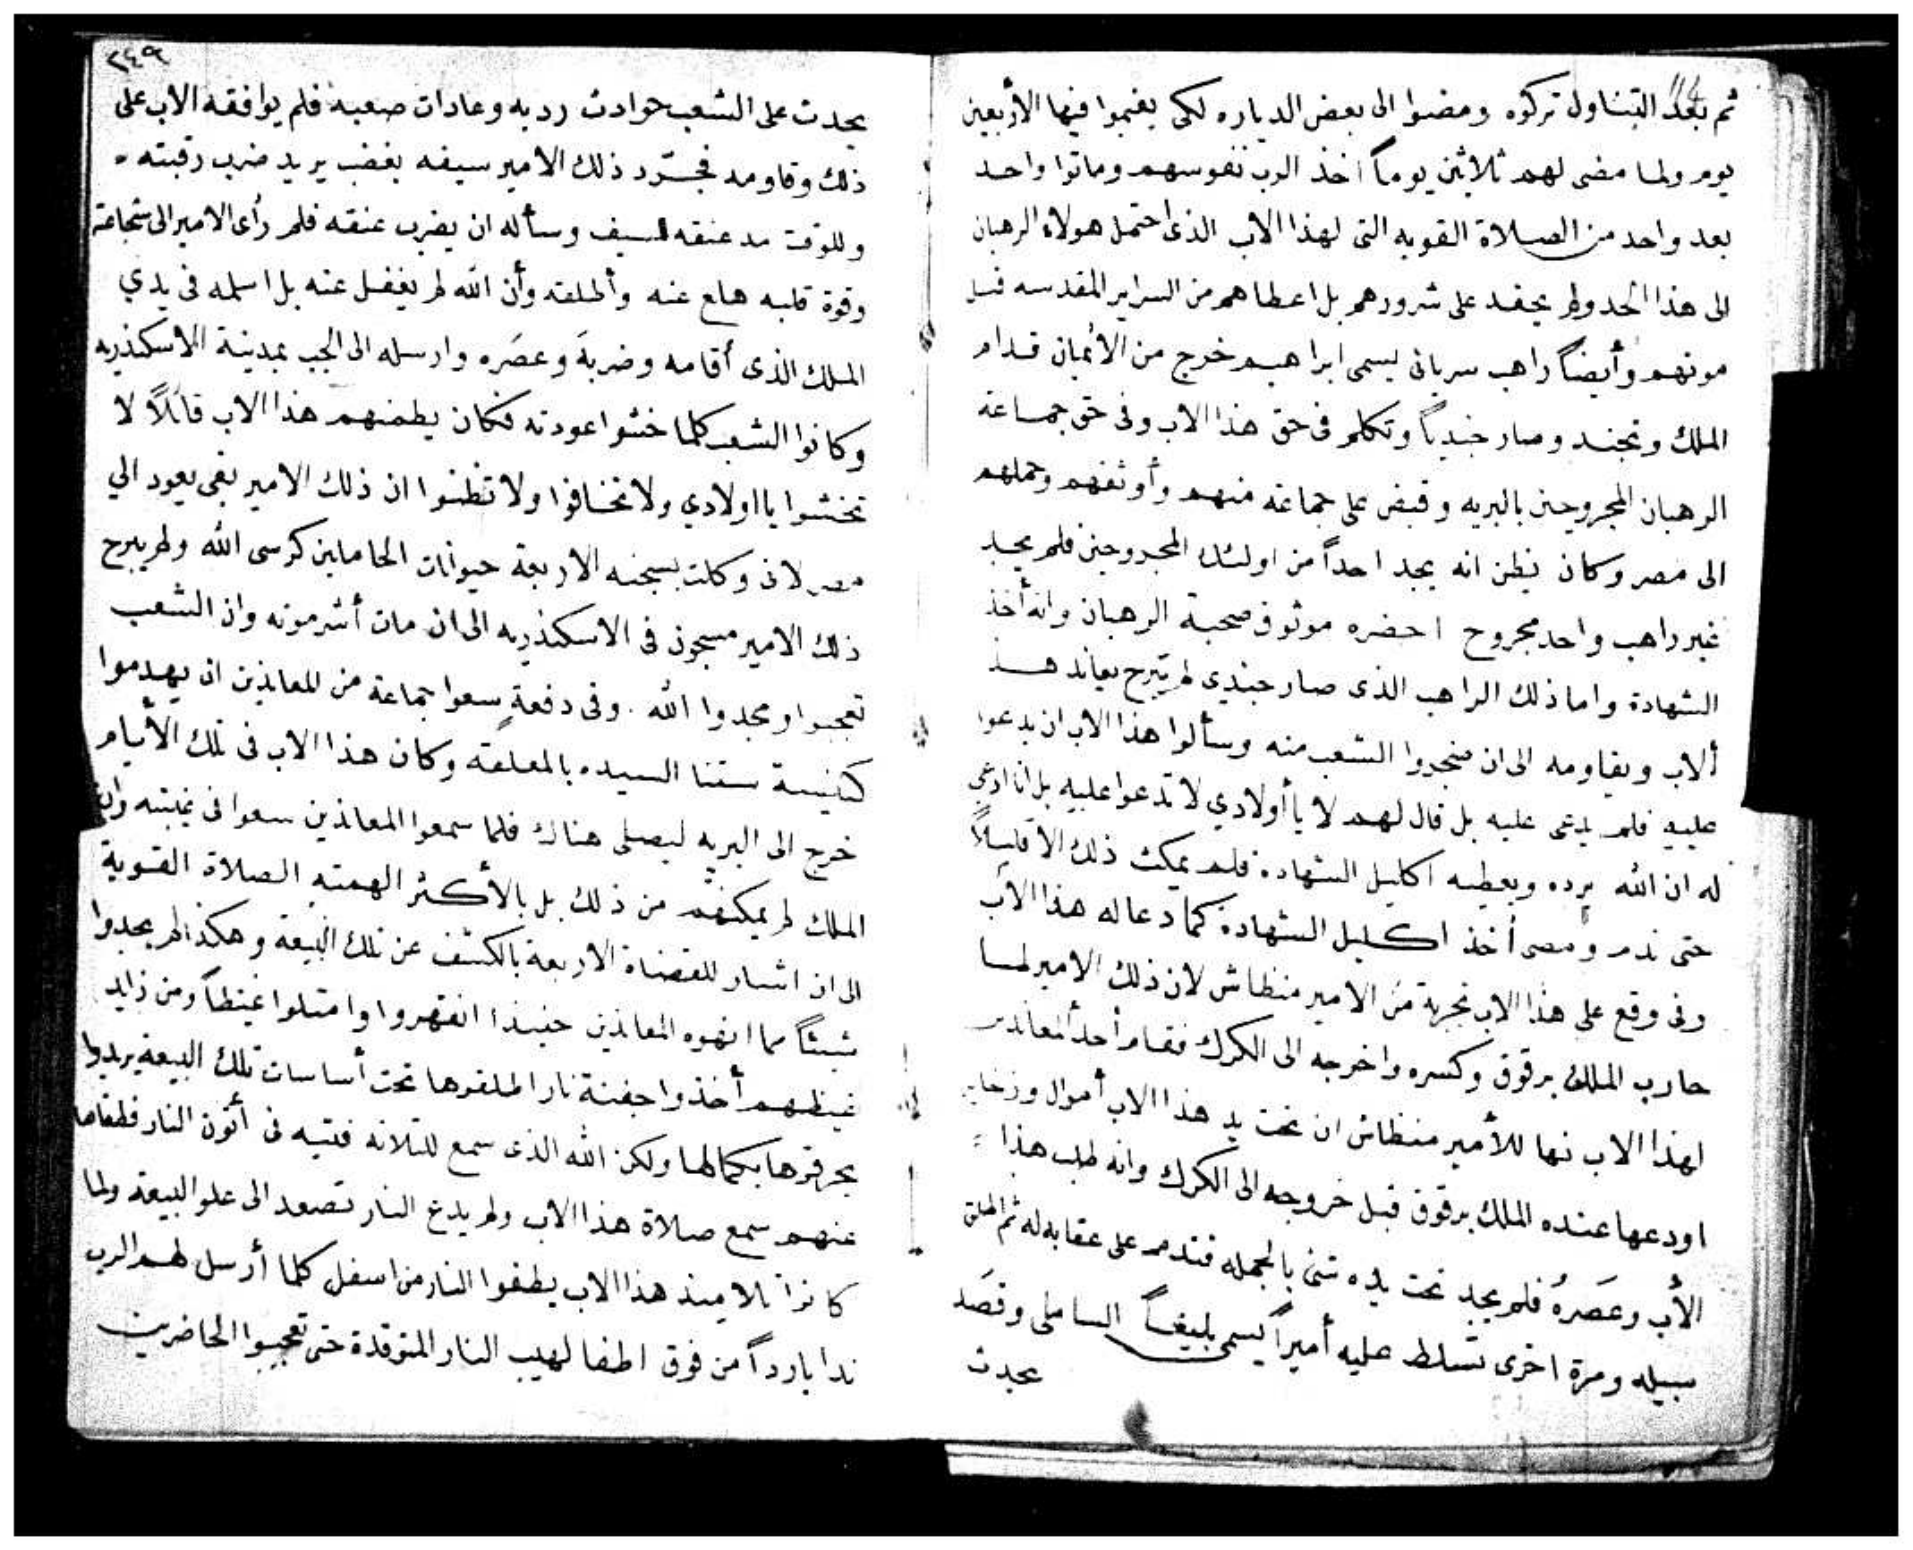 ثم بعد التناول تركوه ومضوا الى بعض الدياره لكى يقيموا فيها الأربعين
يوم ولما مضى لهم ثلاثين يوماً اخذ الرب نفوسهم وماتوا واحد
بعد واحد من الصلاة القويه التى لهذا الاب الذى احتمل هولاء الرهبان
الى هذا الحد ولم يحقد على شرورهم بل اعطاهم من السراير المقدسه قبل
موتهم وأيضاً راهب سريانى يسمى ابراهيم خرج من الأيمان قدام
الملك وتجند وصار جندياً وتكلم فى حق هذا الاب وفى حق جماعة
الرهبان المجروحين بالبريه وقبض على جماعة منهم وأوثقهم وحملهم
الى مصر وكان يظن انه يجد احداً من اولئك المجروحين فلم يجد
غير راهب واحد مجروح احضره موثوق صحبة الرهبان وانه أخذ
الشهادة واما ذلك الراهب الذى صار جندى لم يبرح يعاند هذا
ألاب ويقاومه الى ان ضجروا الشعب منه وسألوا هذا الاب ان يدعوا
عليه فلم يدعى عليه بل قال لهم لا ياأولادي لا تدعوا عليه بل انا ادعى
له ان الله يرده ويعطيه اكليل الشهاده فلم يمكث ذلك الا قليلاً
حتى ندم ومضى أخذ اكليل الشهادة كما دعا له هذا الأب
وفى وقع على هذا الاب تجربة من الامير منطاش لان ذلك الامير لما
حارب الملك برقوق وكسره واخرجه الى الكرك فقام أحد المعاندين
لهذا الاب نها للأمير منطاش ان تحت يد هذا الاب أموال وزخاير
اودعها عنده الملك برقوق قبل خروجه الى الكرك وانه طلب هذا
الأب وعصره فلم يجد تحت يده شئ بالجمله فندم على عقابه له ثم اطلق
سبيله ومرة اخرى تسلط عليه أميراً يسمى يلبغا السالمى وقصد
يحدث
٢٤٩
يحدث على الشعب حوادث رديه وعادات صعبة فلم يوافقه الاب على
ذلك وقاومه فجرّد ذلك الامير سيفه بغضب يريد ضرب رقبته
وللوقت مد عنقه للسيف وسأله ان يضرب عنقه فلم رأى الامير الى شجاعة
وقوة قلبه هلع عنه وأطلقه وأن الله لم يغفل عنه بل اسلمه فى يدي
الملك الذى أقامه وضربة وعصره وارسله الى الجب بمدينة الاسكندريه
وكانوا الشعب كلما خشوا عودته فكان يطمنهم هذا الاب قائلاً لا
تخشوا يااولادي ولا تخافوا ولا تظنوا ان ذلك الامير بقى يعود الي
مصر لانى وكلت بسجنه الاربعة حيوانات الحاملين كرسى الله ولم يبرح
ذلك الامير مسجون فى الاسكندريه الى ان مات أشر موته وان الشعب
تعجبوا ومجدوا الله . وفى دفعة سعوا جماعة من المعاندين ان يهدموا
كنيسة ستنا السيده بالمعلقه وكان هذا الاب فى تلك الأيام
خرج الى البريه ليصلى هناك فلما سمعوا المعاندين سعوا فى غيبته وان
الملك لم يمكنهم من ذلك بل بالأكثر الهمته الصلاة القوية
الى ان اشار للقضاة الاربعة بالكشف عن تلك البيعة وهكذا لم يجدوا
شيئاً مما انهوه المعاندين حنيذا انقهروا وامتلوا غيظاً ومن زايد
غيظهم أخذوا جفنة نار اطلقوها تحت أساسات تلك البيعة يريدوا
يحرقوها بكمالها ولكن الله الذى سمع للتلاته فتيه فى أتون النار فطفاها
عنهم سمع صلاة هذا الاب ولم يدع النار تصعد الى علو البيعة ولما
كانوا تلاميذ هذا الاب يطفوا النار من اسفل كلما أرسل لهم الرب
ندا بارداً من فوق اطفا لهيب النار المتوقدة حتى تعجبوا الحاضرين